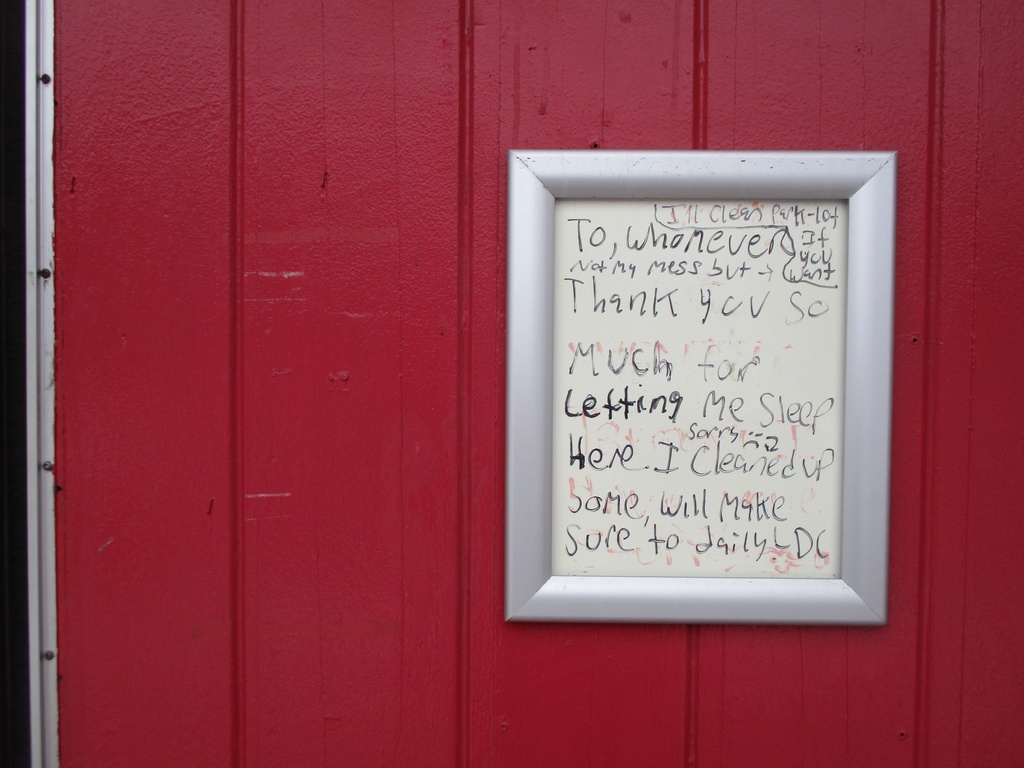 I'll clean park-lot
If
you
want
To, whomever
Not my mess but →
Thank you so
Much for
Letting Me Sleep
Sorry
Here. I Cleaned up
Some, will Make
Sure to daily - DC